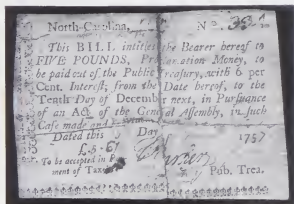 North-Carolina, No.
This BILL intitles the Bearer hereof to
FIVE POUNDS, Proclamation Money, to
be paid out of the Public Treasury, with 6 per
Cent. Interest, from the Date hereof, to the
Tenth Day of December next, in Pursuance
of an Act of the General Assembly, in such
Case made and
Dated this Day 1757
£.5
To be accepted in Pay-
ment of Taxes Pub. Trea.